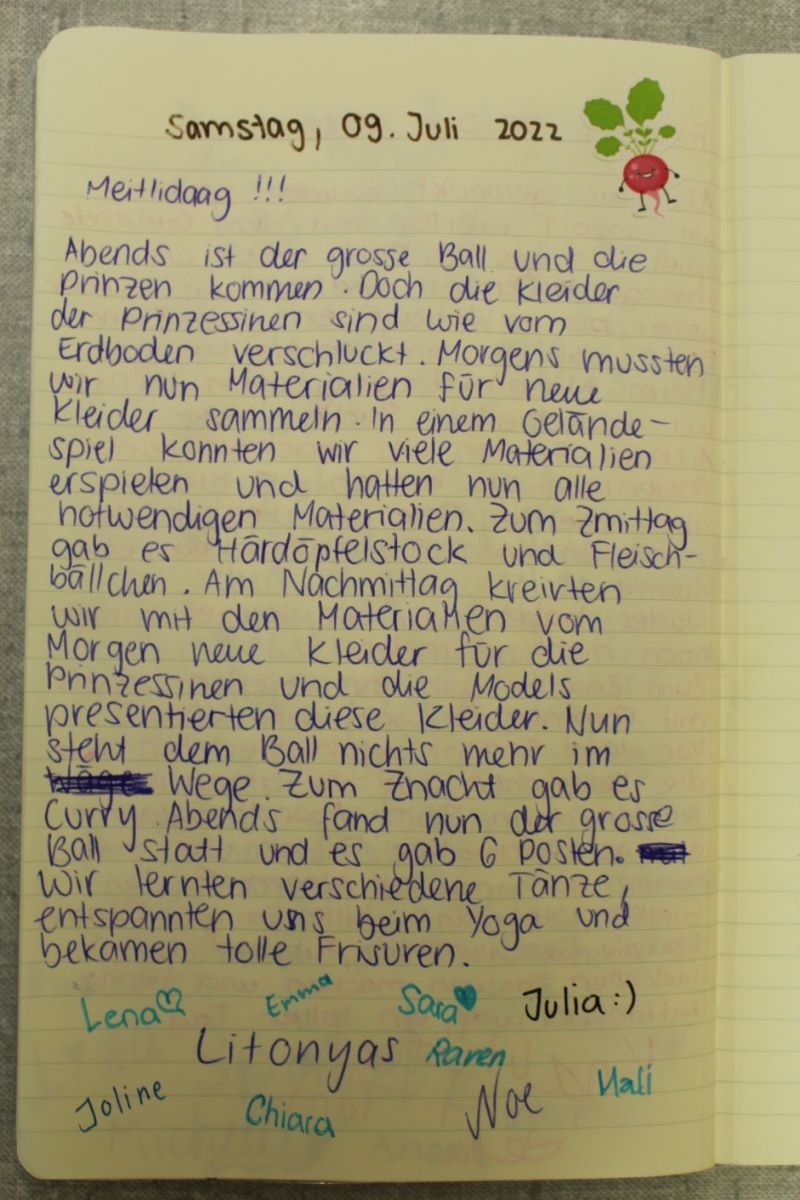 Samstag, 09. Juli 2022
Meitlidaag !!!
Abends ist der grosse Ball und die
Prinzen kommen. Doch die Kleider
der Prinzessinen sind wie vom
Erdboden verschluckt. Morgens mussten
wir nun Materialien für neue
Kleider sammeln. In einem Gelände-
spiel konnten wir viele Materialien
erspielen und hatten nun alle
notwendigen Materialien. Zum Zmittag
gab es Härdöpfelstock und Fleisch-
bällchen. Am Nachmittag kreirten
wir mit den Materialien vom
Morgen neue Kleider für die
Prinzessinen und die Models
presentierten diese Kleider. Nun
steht dem Ball nichts mehr im
Wege. Zum Znacht gab es
Curry. Abends fand nun der grosse
Ball statt und es gab 6 Posten.
Wir lernten verschiedene Tänze,
entspannten uns beim Yoga und
bekamen tolle Frisuren.
Lena Emma Sara Julia :)
Litonyas Raren
Joline Chiara Noe Mali